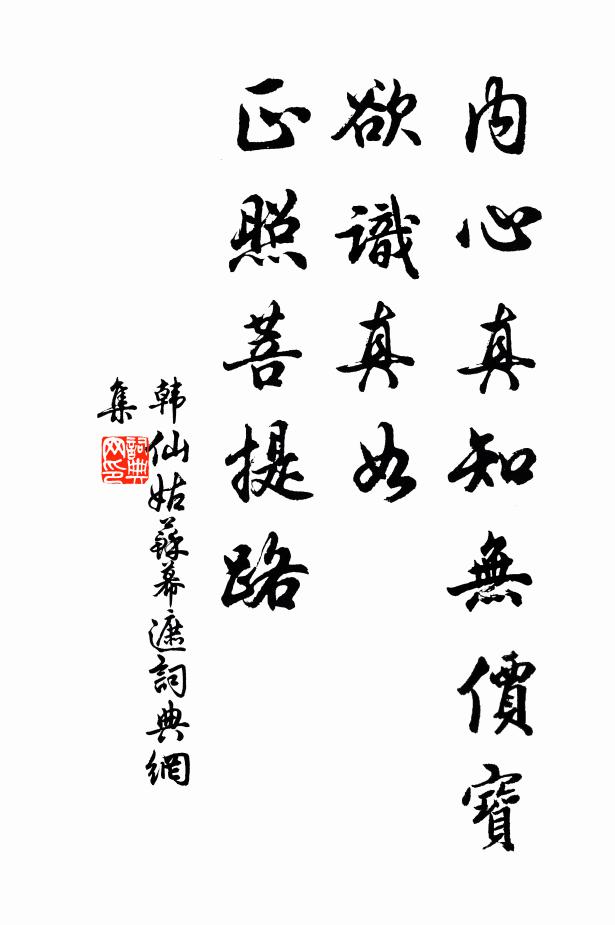 內心真知無價寶
欲識真如
正照菩提路
韩仙姑蘇幕遮詞典網
集
詞典
网印